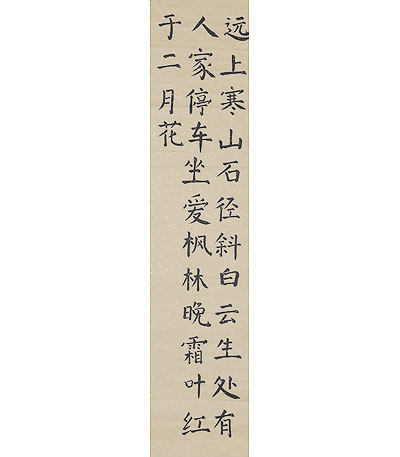 远上寒山石径斜白云生处有
人家停车坐爱枫林晚霜叶红
于二月花